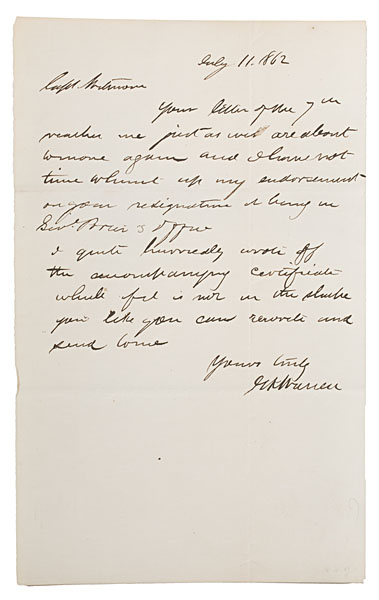 July 11. 1862
Capt
Your letter of the 7th
reaches me just as we are about
to move again and I have not
time to hunt up my endorsement
on your resignation it being in
Genl. office
I quite hurriedly wrote off
the accompanying certificate
which if it is not in the shape
you like you can rewrite and
send to me
Yours truly
GKWarren